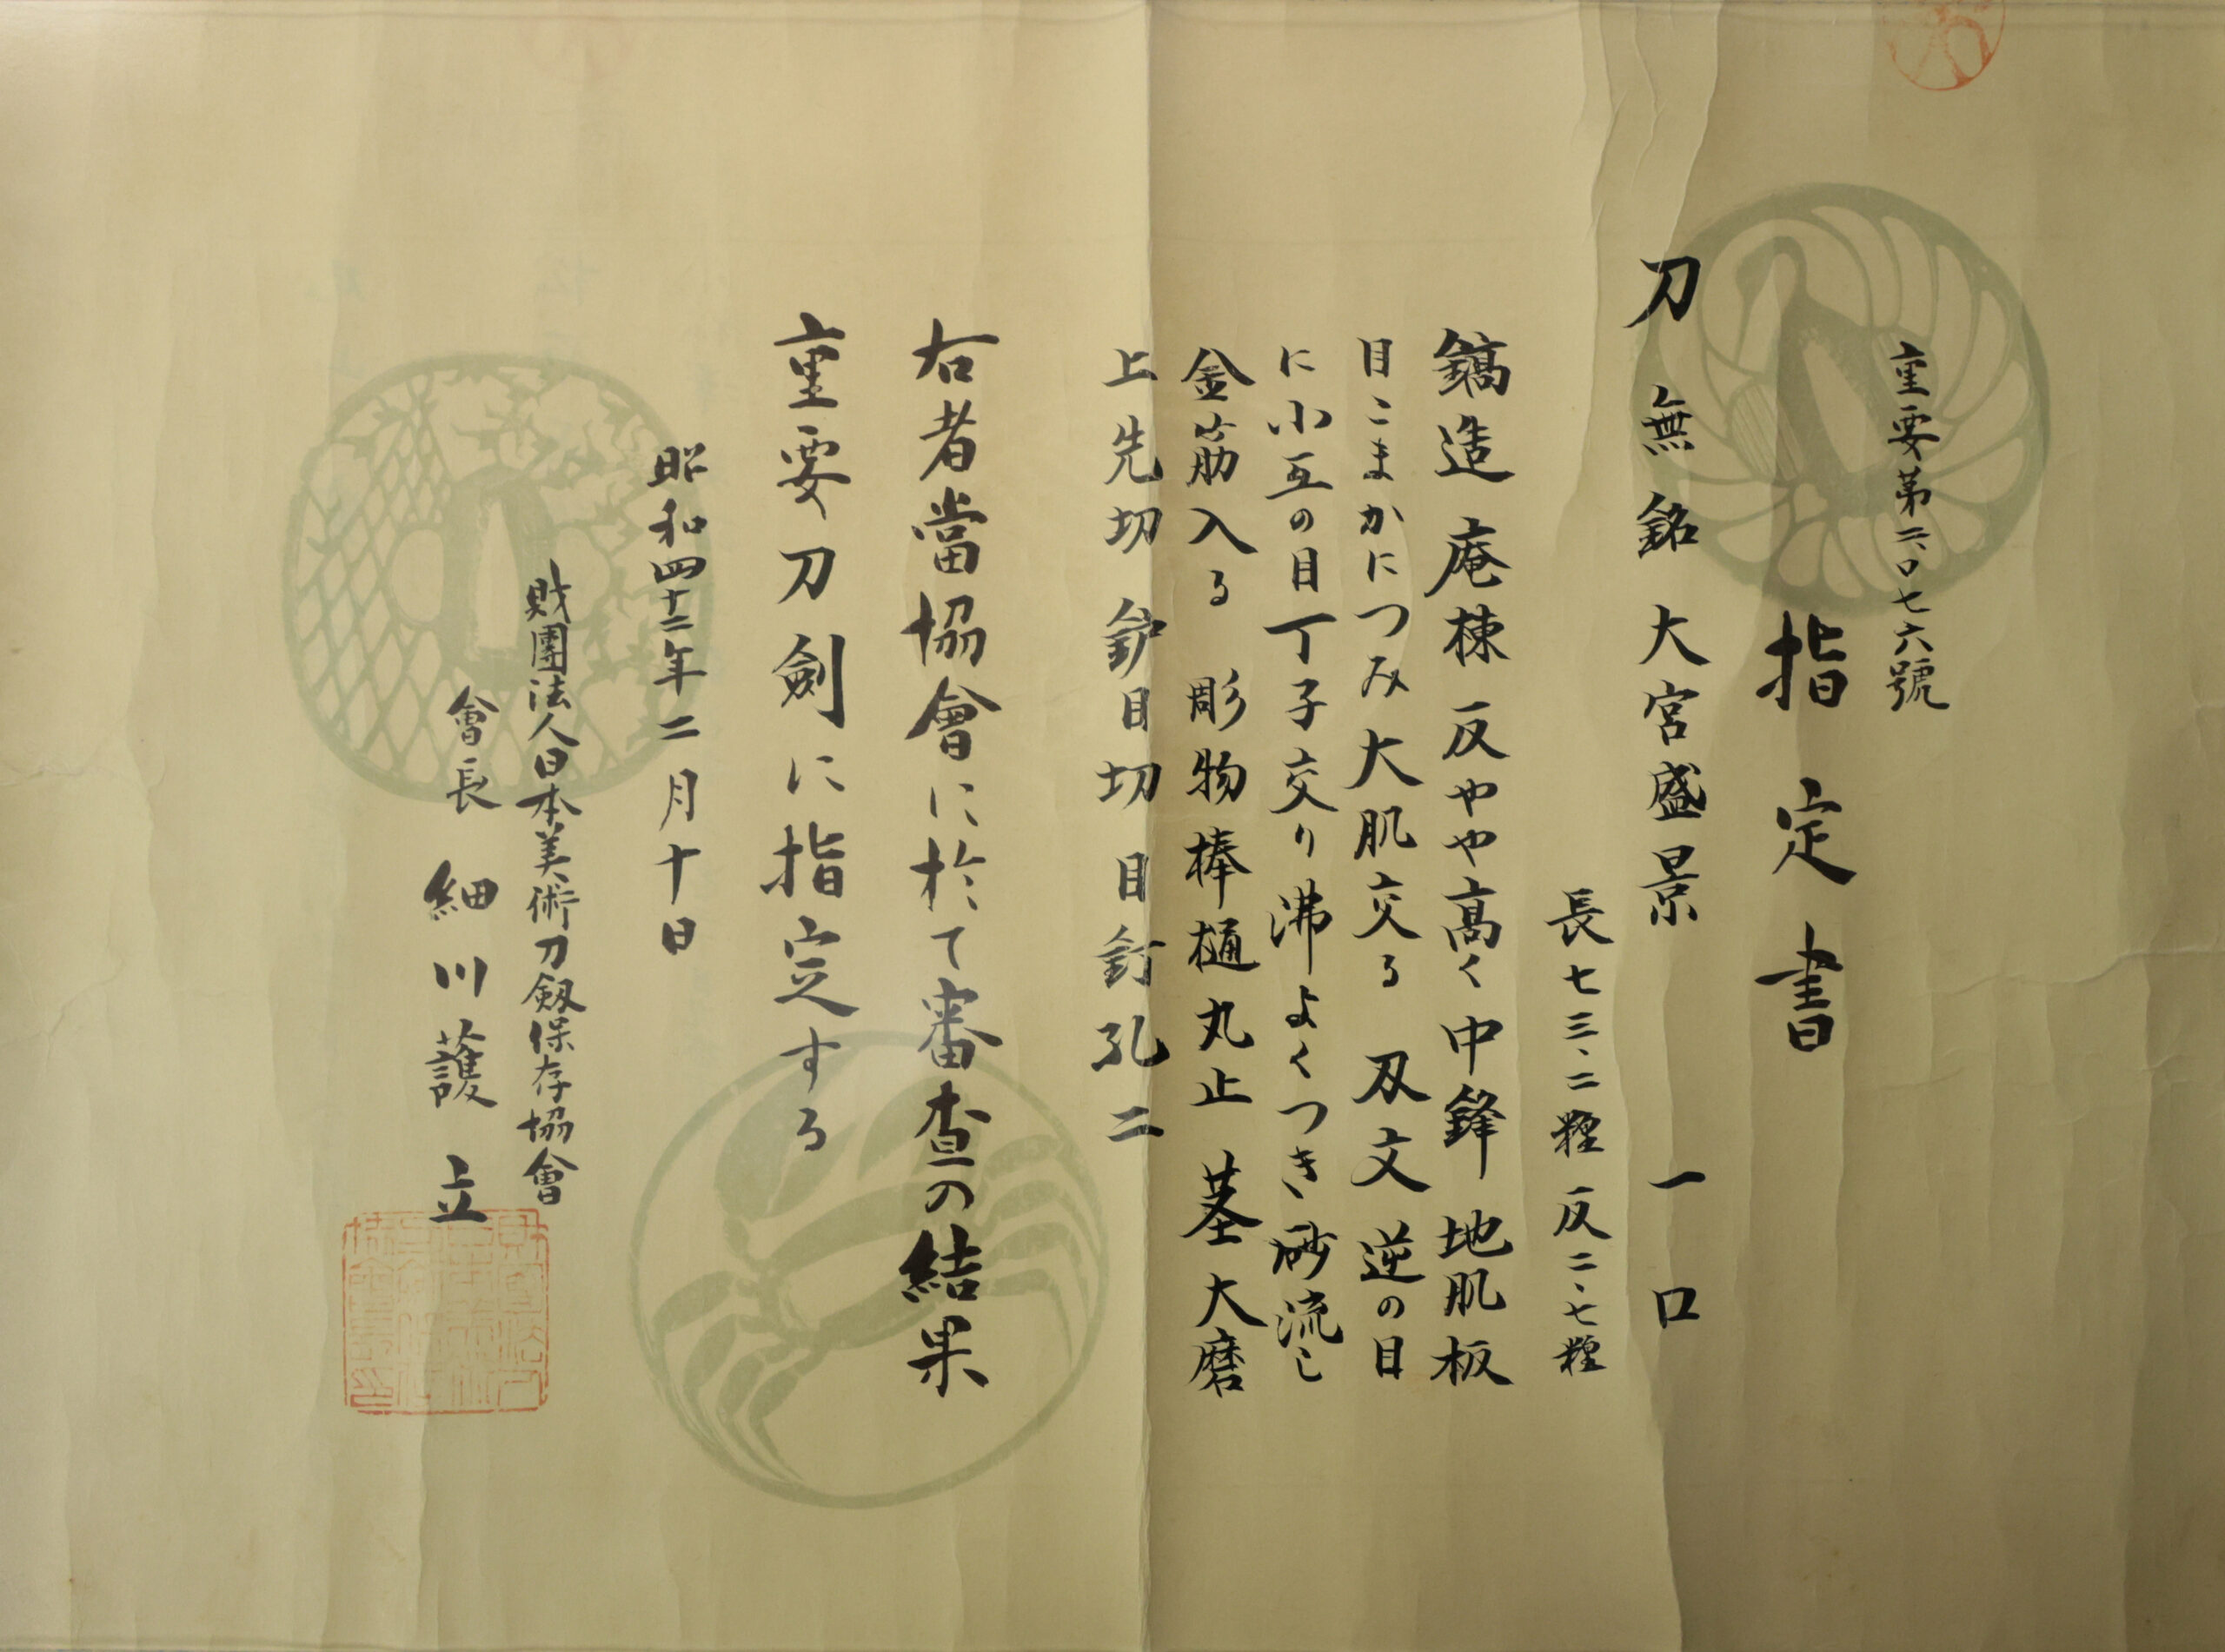 重要第二、〇七六號
指定書
刀 無銘 大宮盛景 一口
長七三、二糎 反二、七糎
鎬造 庵棟 反やや高く 中鋒 地肌板
目こまかにつみ大肌交る 刄文 逆の目
に小互の目丁子交り沸よくつき砂流し
金筋入る 彫物棒樋丸止 茎大磨
上先切 鈩目切 目釘孔二
右者當協會に於て審査の結果
重要刀剣に指定する
昭和四十二年二月十日
財團法人日本美術刀劔保存協會
會長 細川護立